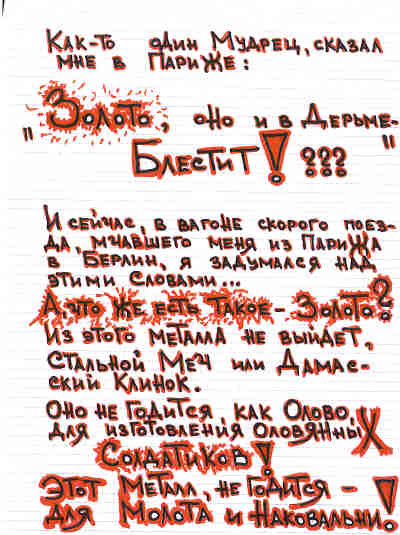 Как-то один Мудрец, сказал
мне в Париже:
"Золото, оно и в Дерьме-
Блестит! ???"
И сейчас, в вагоне скорого поез-
да, мчавшего меня из Парижа
в Берлин, я задумался над
этими словами...
А, что же есть такое - Золото?
Из этого металла не выйдет,
стальной Меч или Дамас-
ский Клинок.
Оно не годится, как Олово,
для изготовления Оловянных
Солдатиков!
Этот металл, не годится -
для Молота и Наковальни!